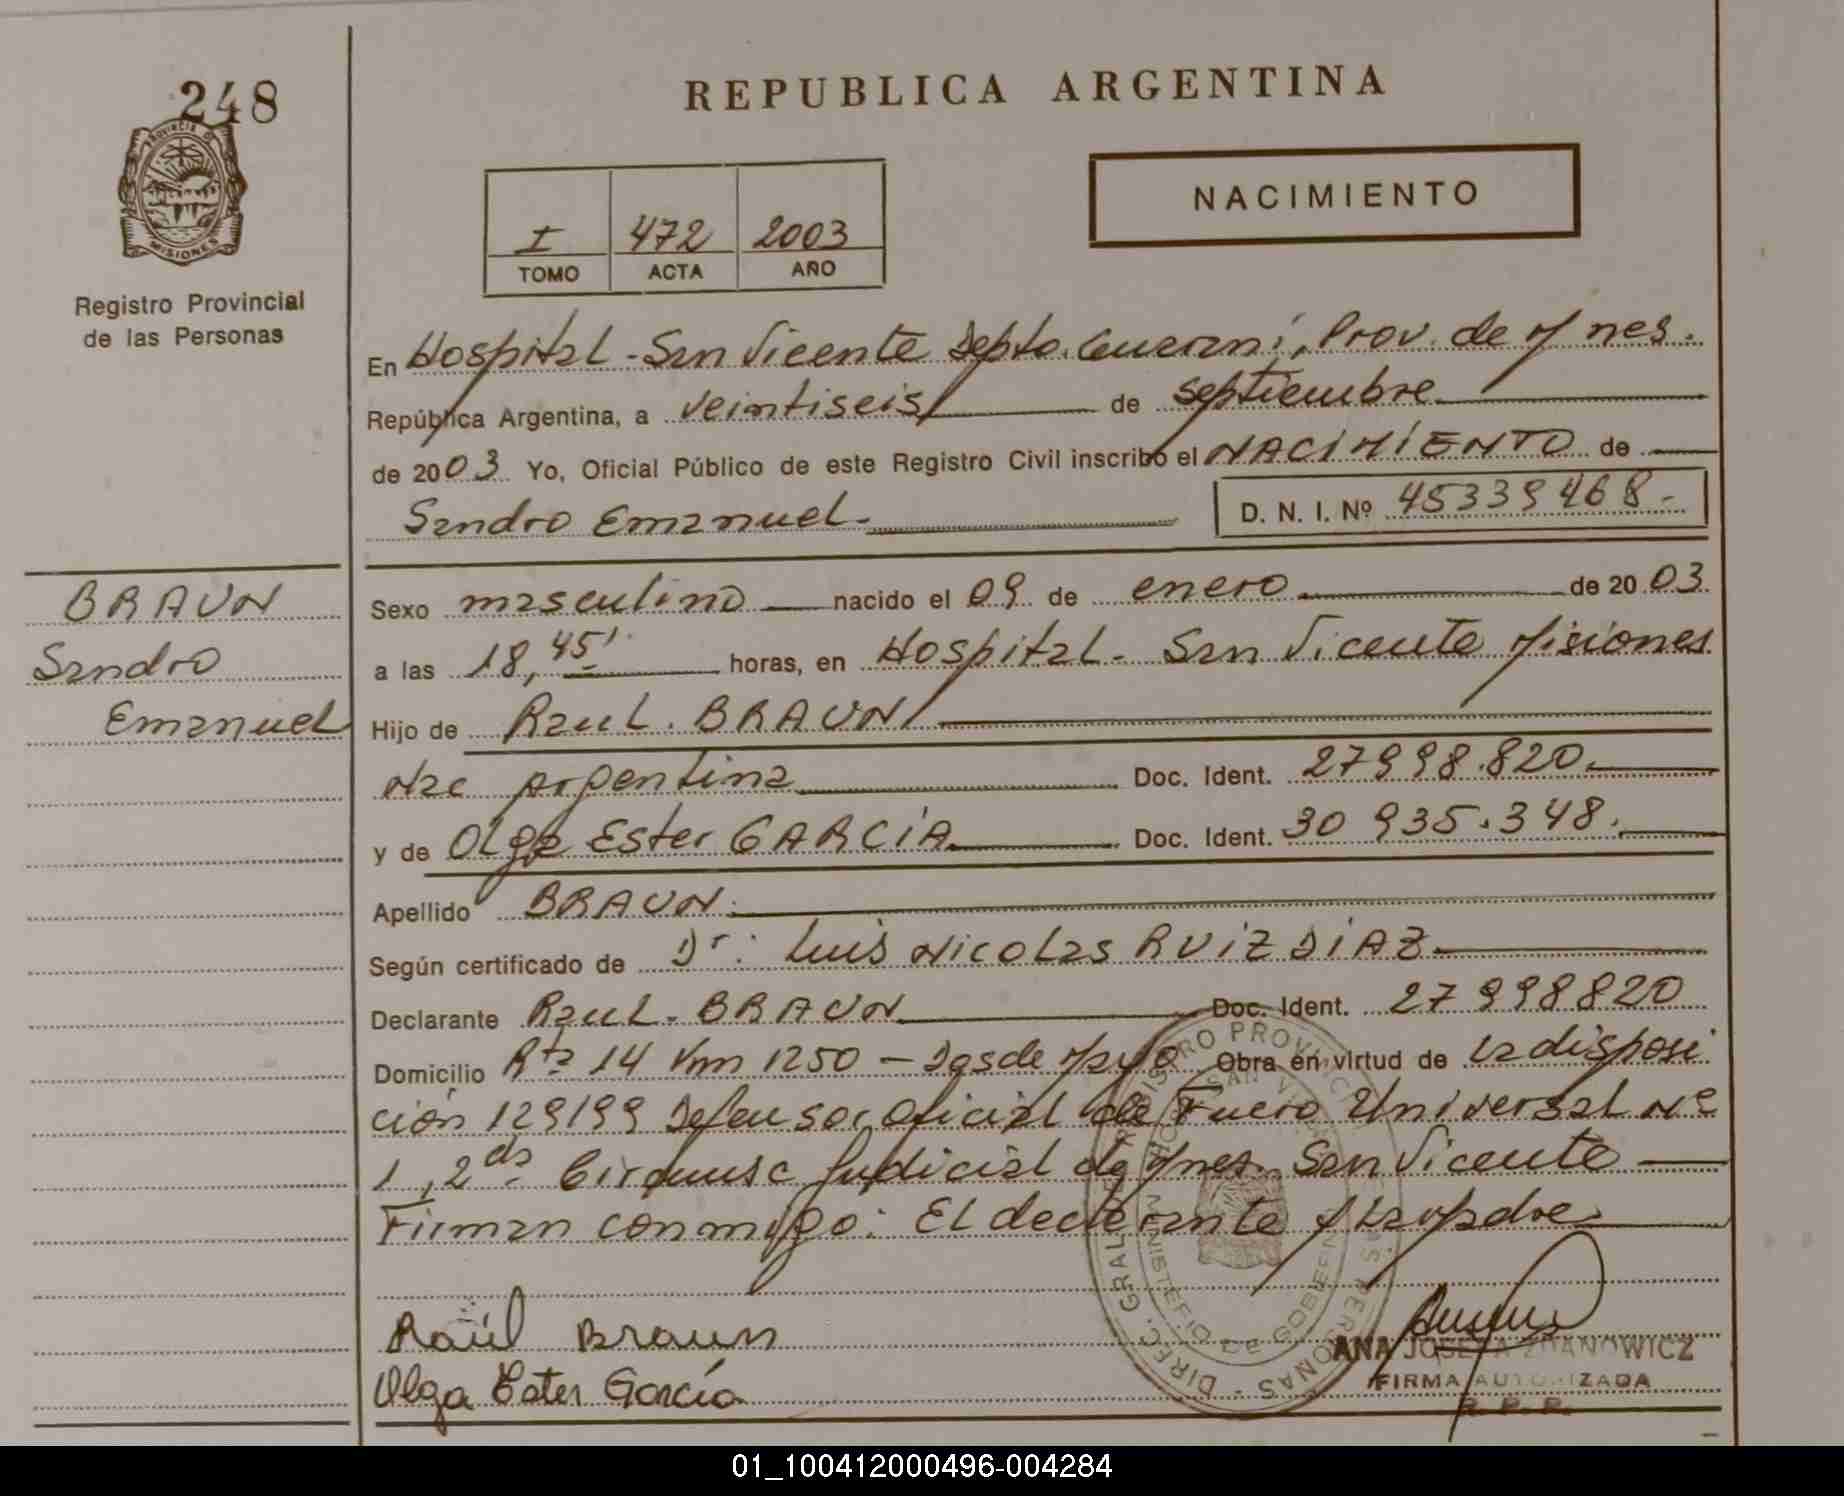 248
REPUBLICA ARGENTINA
PROVINCIA DE
MISIONES
Registro Provincial
de las Personas
NACIMIENTO
I 472 2003
TOMO ACTA AÑO
En Hospital - San Vicente Depto. Guaraní, Prov. de Mnes.
República Argentina, a veintiseis de septiembre
de 2003 Yo, Oficial Público de este Registro Civil inscribo el NACIMIENTO de
Sandro Emanuel. D. N. I. Nº 45339468.-
BRAUN
Sandro
Emanuel
Sexo masculino nacido el 09 de enero de 2003.
a las 18,45' horas, en Hospital - San Vicente Misiones
Hijo de Raul. BRAUN
Nac Argentina Doc. Ident. 27998.820.
y de Olga Ester GARCÍA Doc. Ident. 30 935.348.
Apellido BRAUN.
Según certificado de Dr. Luis Nicolas RUIZ DIAZ
Declarante Raul. BRAUN Doc. Ident. 27 998820
Domicilio Rta 14 Km 1250 - Desde Mayo Obra en virtud de la disposi
ción 129/99 Defensor Oficial de Fuero Universal Nº
1, 2da Circunsc Judicial de Mnes. San Vicente
Firman conmigo: El declarante y la Madre
Raúl Braun
Olga Ester García
ANA JOSEFA ZDANOWICZ
FIRMA AUTORIZADA
R. P. P.
01_100412000496-004284